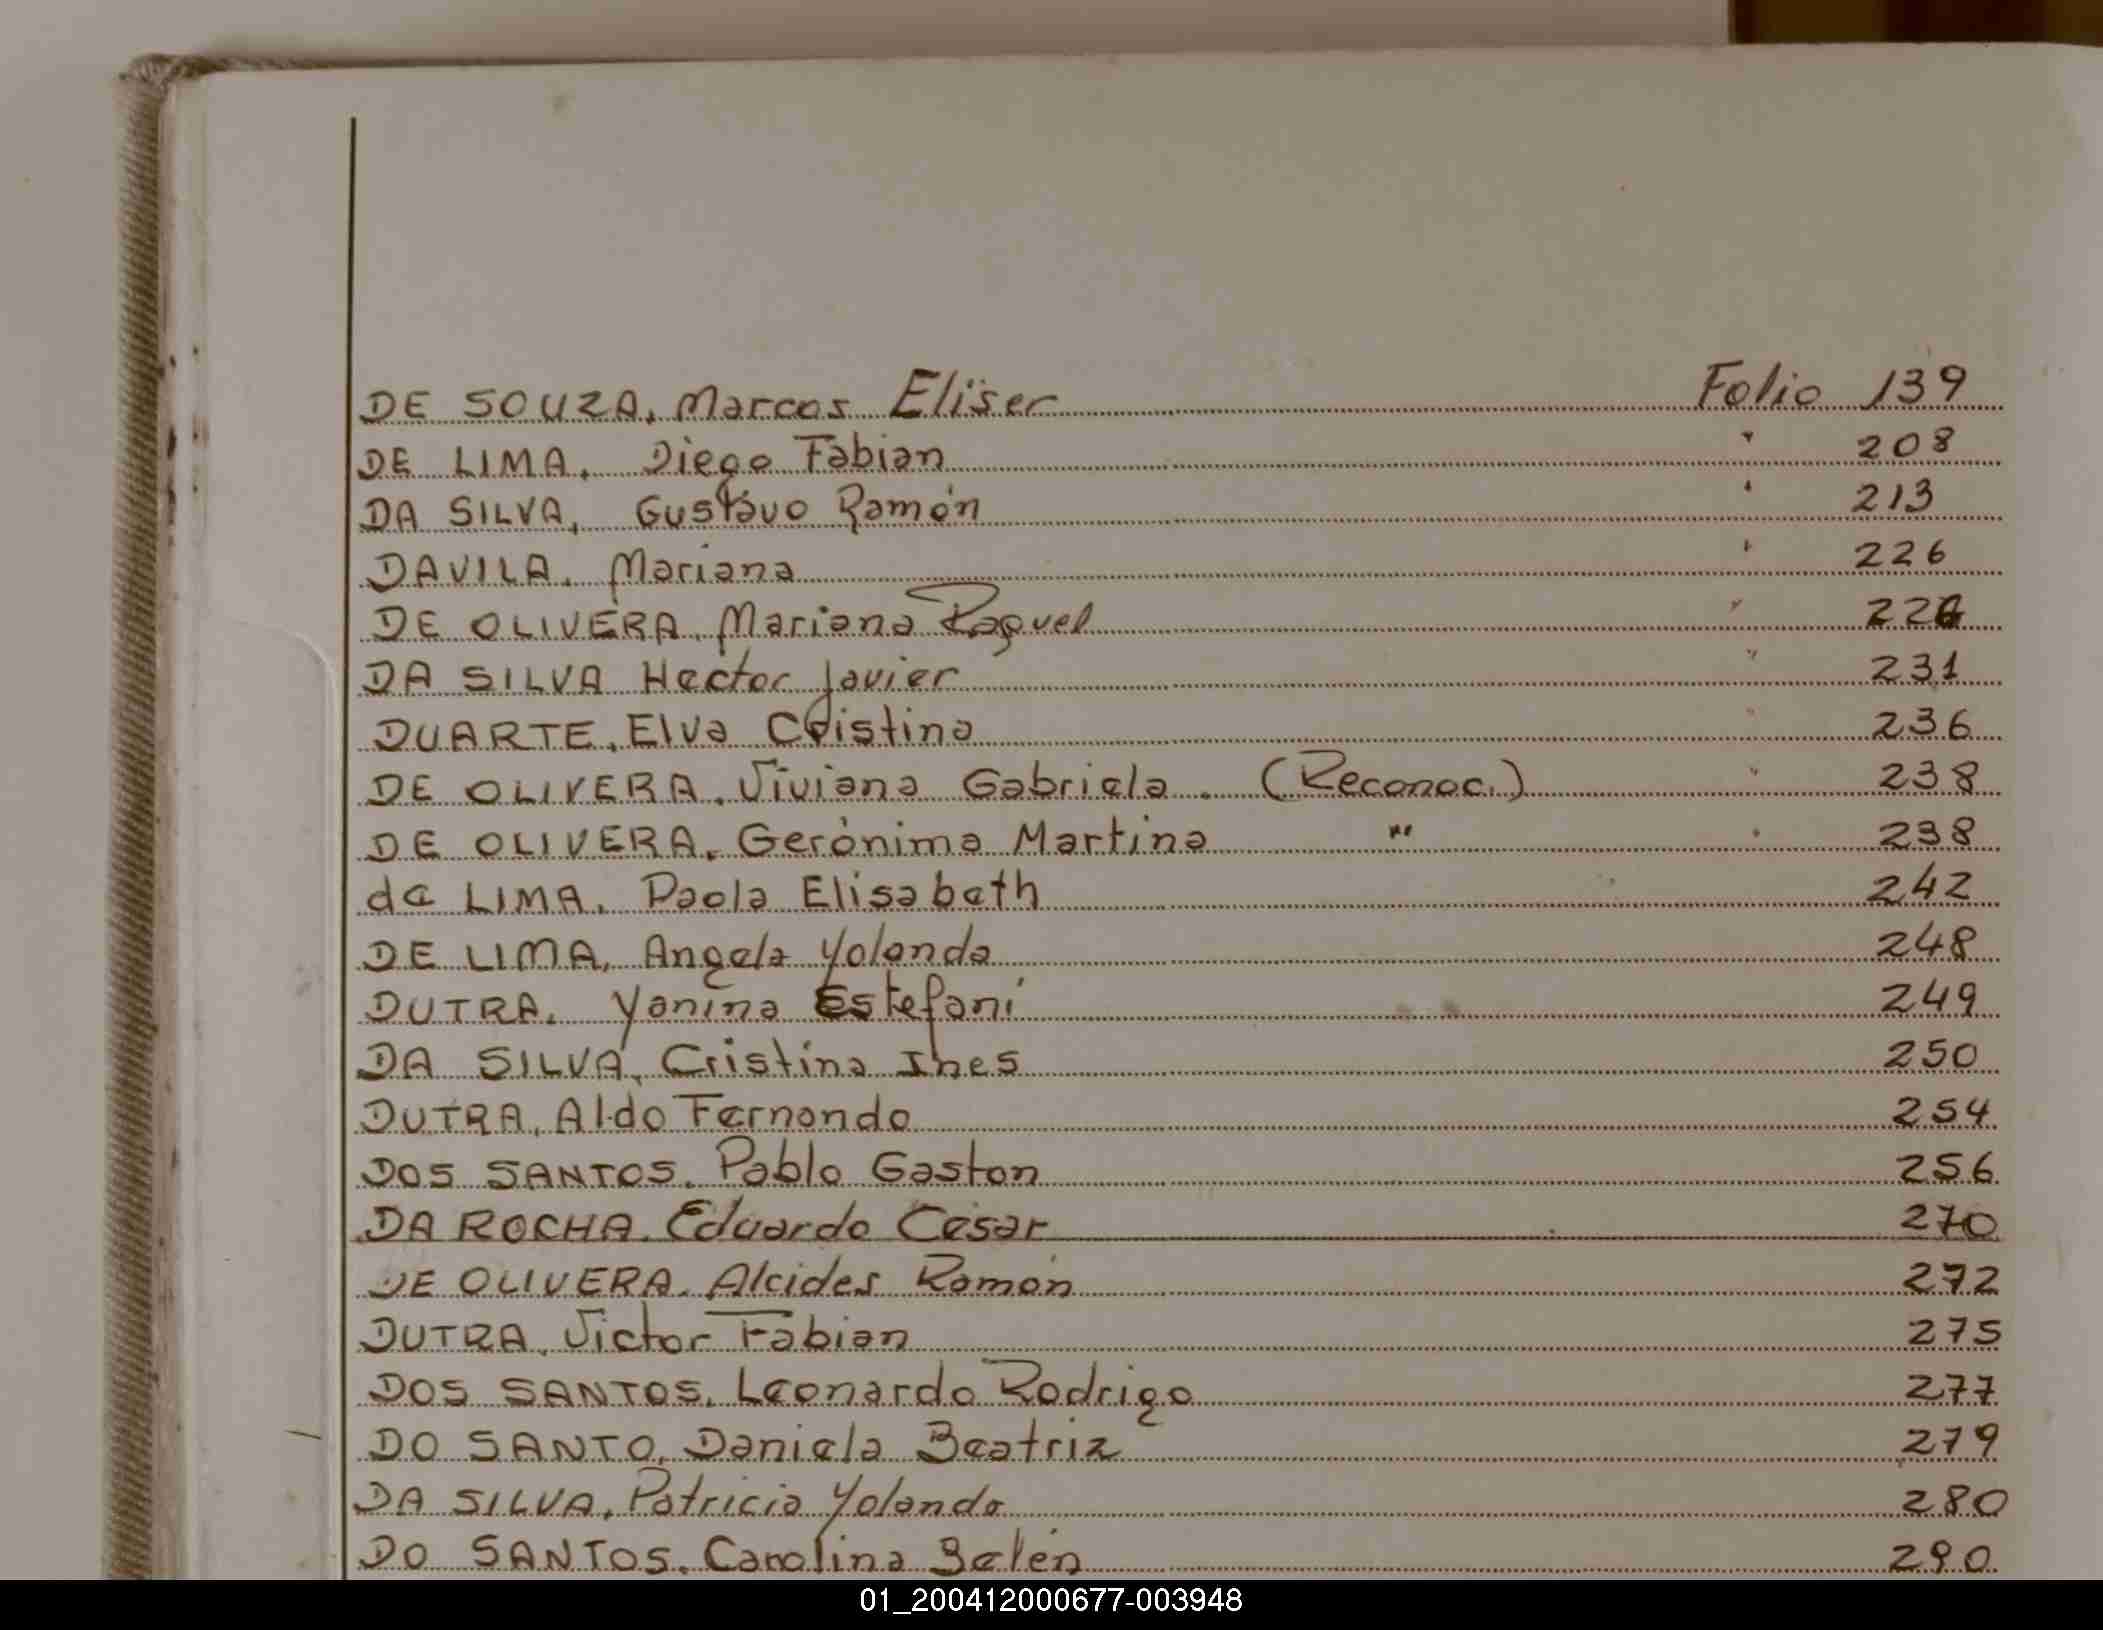 DE SOUZA, Marcos Eliser Folio 139
DE LIMA, Diego Fabian " 208
DA SILVA, Gustavo Ramón " 213
DAVILA, Mariana " 226
DE OLIVERA, Mariana Raquel "
DA SILVA Hector Javier " 231
DUARTE, Elva Cristina " 236
DE OLIVERA, Viviana Gabriela. (Reconoc.) " 238
DE OLIVERA, Gerónima Martina " " 238
de LIMA, Paola Elisabeth 242
DE LIMA, Angela Yolanda 248
DUTRA, Yanina Estefani 249
DA SILVA, Cristina Ines 250
DUTRA, Aldo Fernando 254
DOS SANTOS, Pablo Gaston 256
DA ROCHA, Eduardo César 270
DE OLIVERA, Alcides Ramón 272
DUTRA, Victor Fabian 275
DOS SANTOS, Leonardo Rodrigo 277
DO SANTO, Daniela Beatriz 279
DA SILVA, Patricia Yolanda 280
DO SANTOS, Carolina Belén 290
01_200412000677-003948